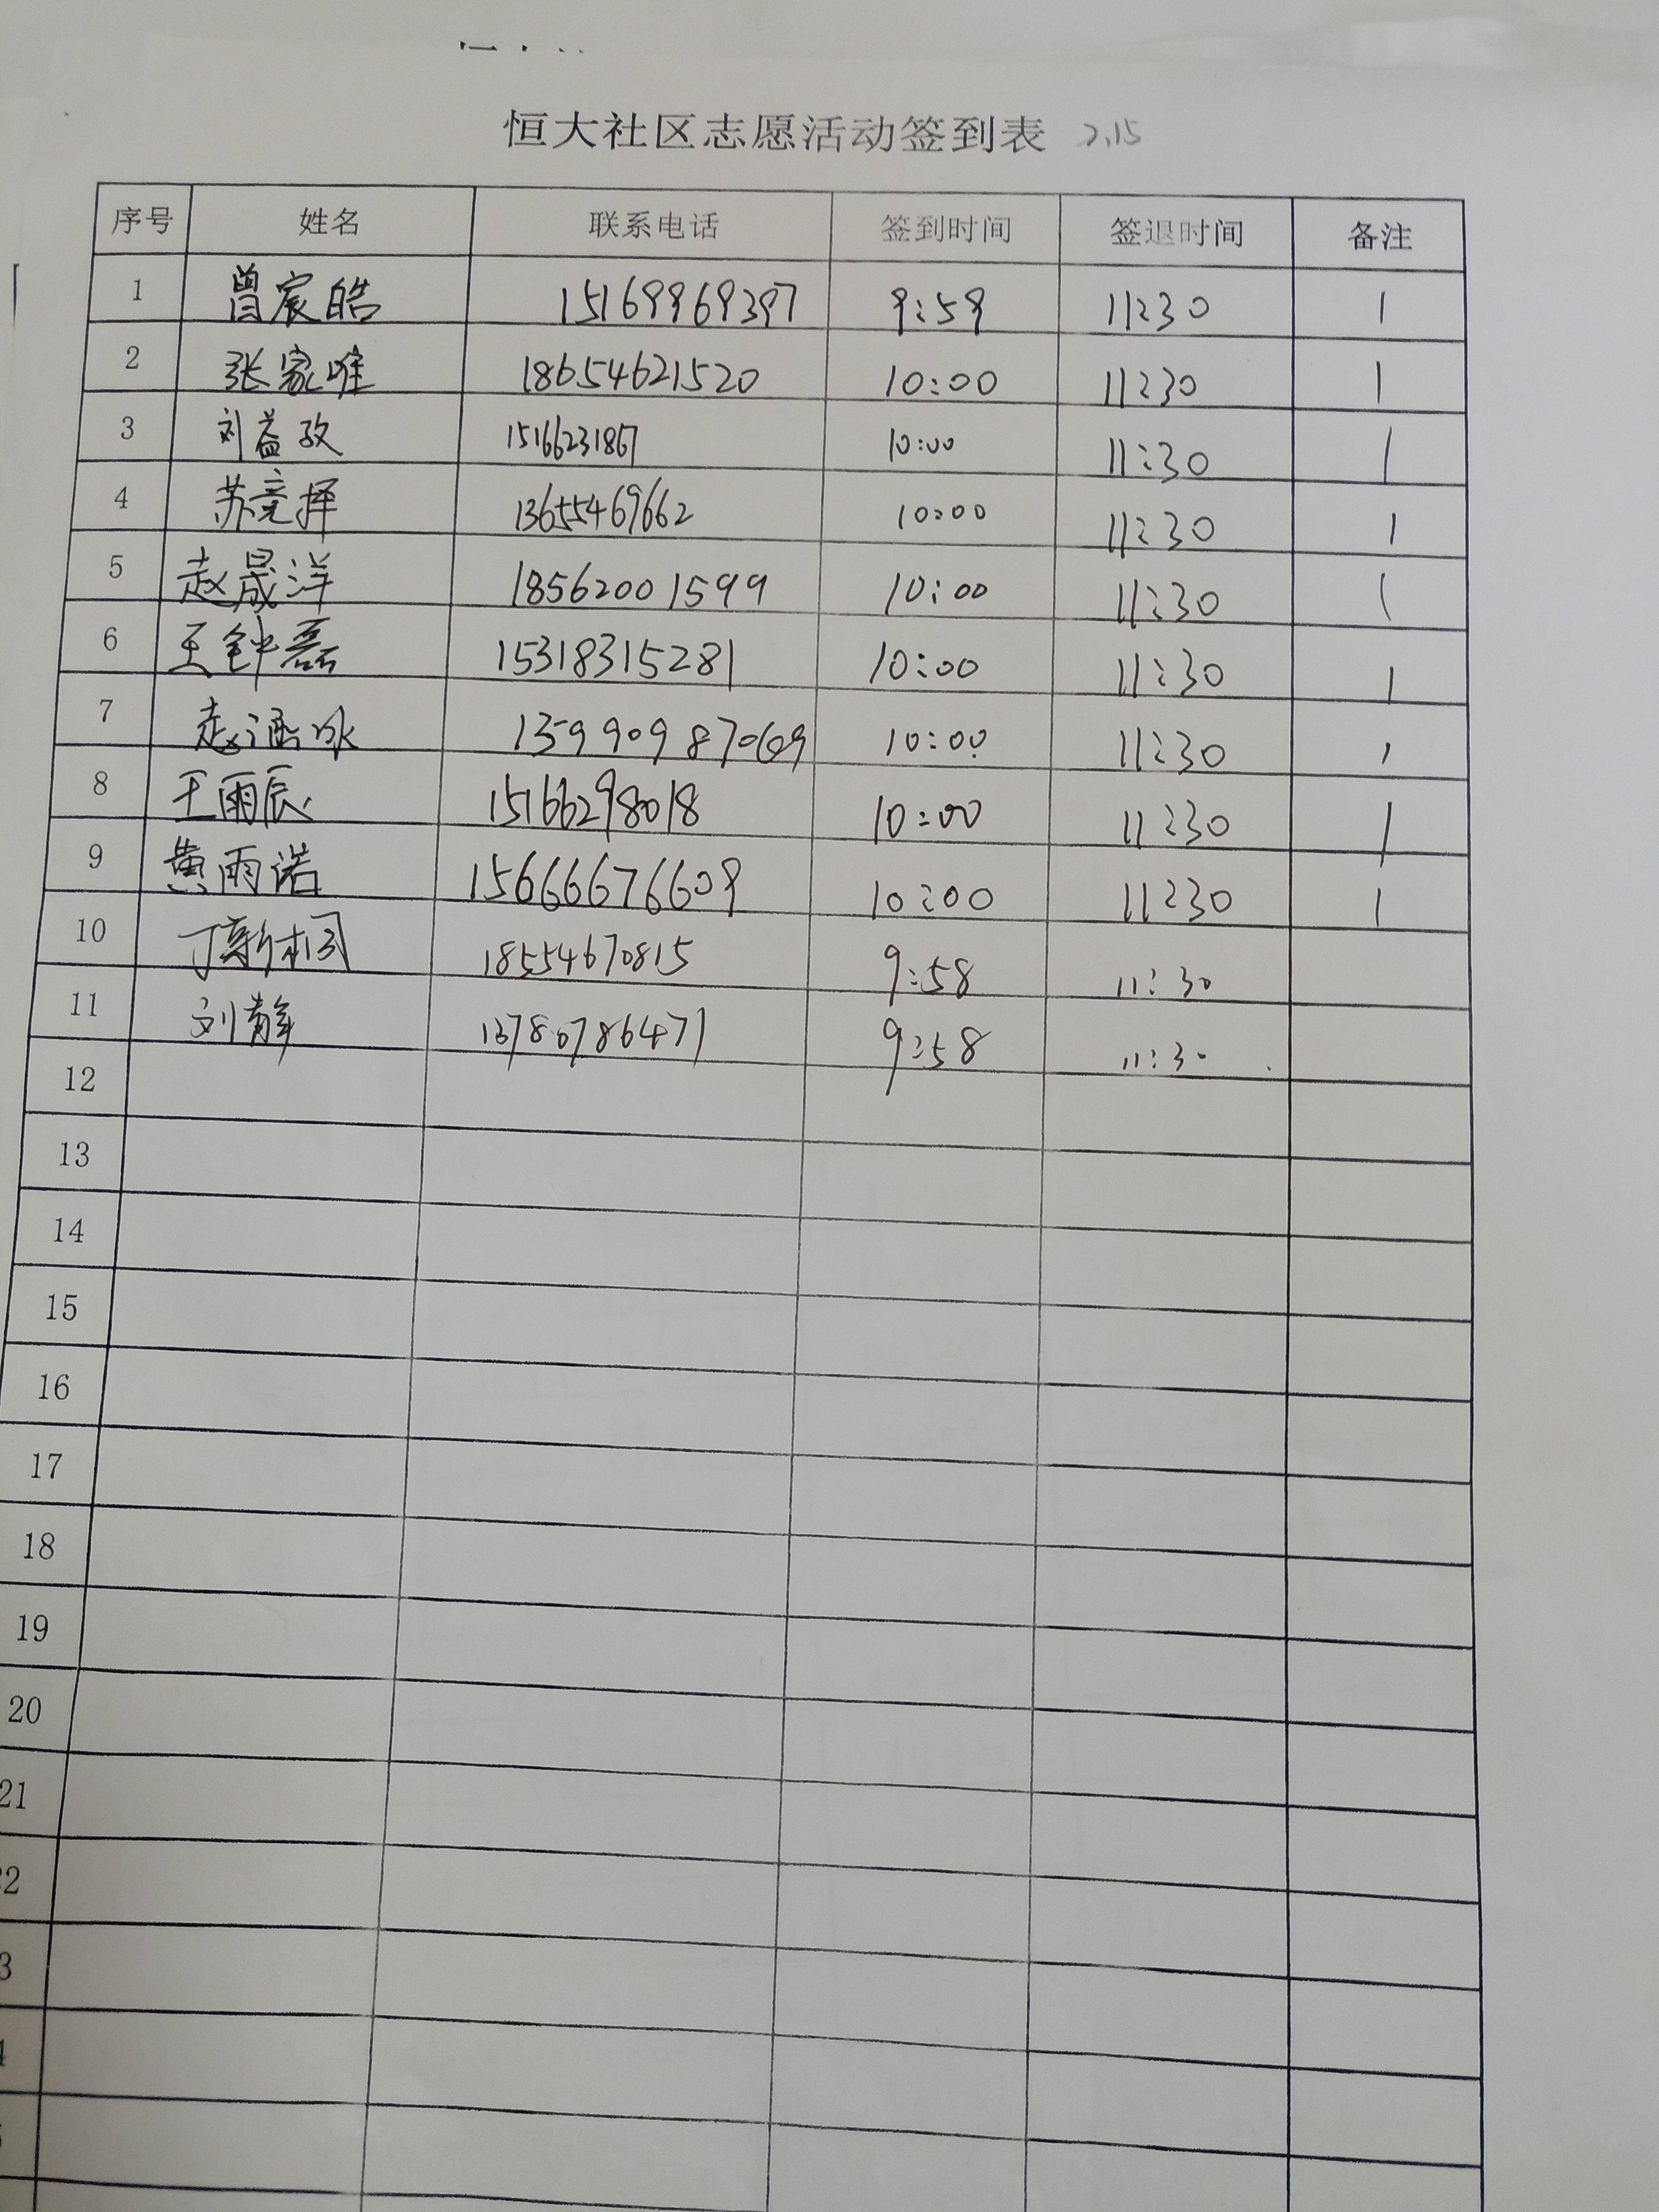 恒大社区志愿活动签到表 2.15
序号 姓名 联系电话 签到时间 签退时间 备注
1 曾宸皓 15169969397 9:59 11:30 1
2 张家唯 18654621520 10:00 11:30 1
3 刘益孜 15166231867 10:00 11:30 1
4 苏竞择 13655469662 10:00 11:30 1
5 赵晟洋 18562001599 10:00 11:30 1
6 王钟磊 15318315281 10:00 11:30 1
7 赵涵冰 10:00 11:30
8 王雨辰 15166298018 10:00 11:30 1
9 黄雨诺 15666676609 10:00 11:30 1
10 18554670815 9:58 11:30
11 刘静 9:58 11:30
12
13
14
15
16
17
18
19
20
21